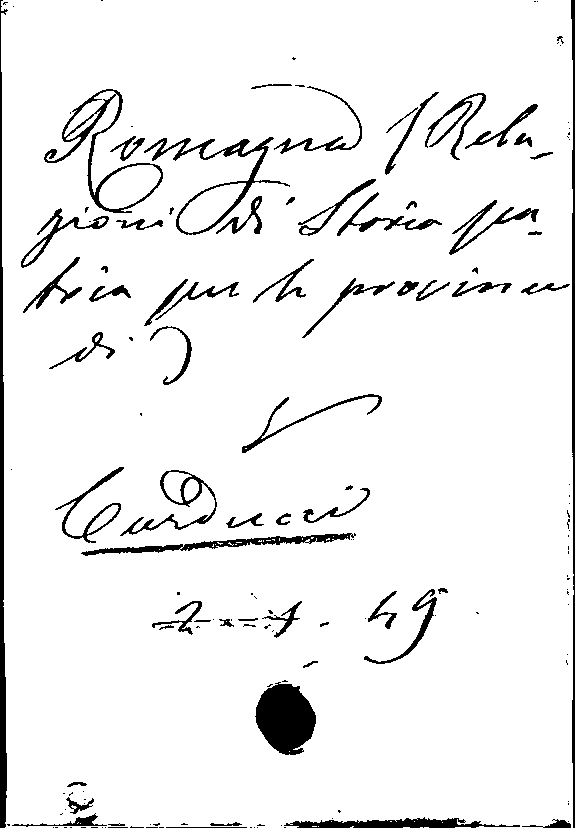 Romagna (Rela-
zioni di Storia pa-
tria per le provincie
di)
V
Carducci
h 49